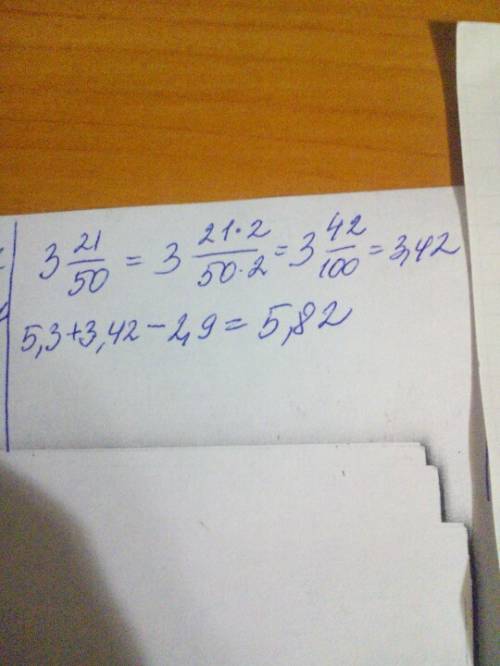 3 21/50 = 3 21·2/50·2 = 3 42/100 = 3,42
5,3+3,42-2,9=5,82